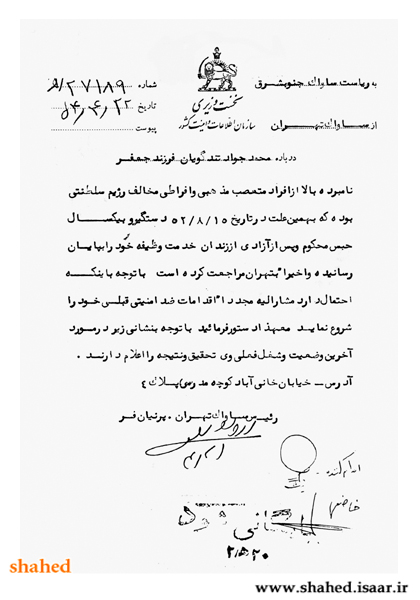 به ریاست ساواک جنوبشرق
از ساواک تهران
نخست وزیری
سازمان اطلاعات و امنیت کشور
شماره ۲۷۱۸۹
تاریخ ۵۴/۴/۲۲
پیوست
درباره محمد جواد تندگویان فرزند جعفر
نامبرده بالا از افراد متعصب مذهبی و افراطی مخالف رژیم سلطنتی
بوده که بهمین علت در تاریخ ۵۲/۸/۱۵ دستگیر و بیکسال
حبس محکوم و پس از آزادی از زندان خدمت وظیفه خود را بپایان
رسانیده و اخیرا بتهران مراجعت کرده است با توجه باینکه
احتمال دارد مشارالیه مجددا اقدامات ضد امنیتی قبلی خود را
شروع نماید معهذا دستور فرمائید با توجه بنشانی زیر در مورد
آخرین وضعیت و شغل فعلی وی تحقیق و نتیجه را اعلام دارند .
آدرس - خیابان خانی آباد کوچه مدرسی پلاک ٤
رئیس ساواک تهران . پرنیان فر
shahed
www.shahed.isaar.ir